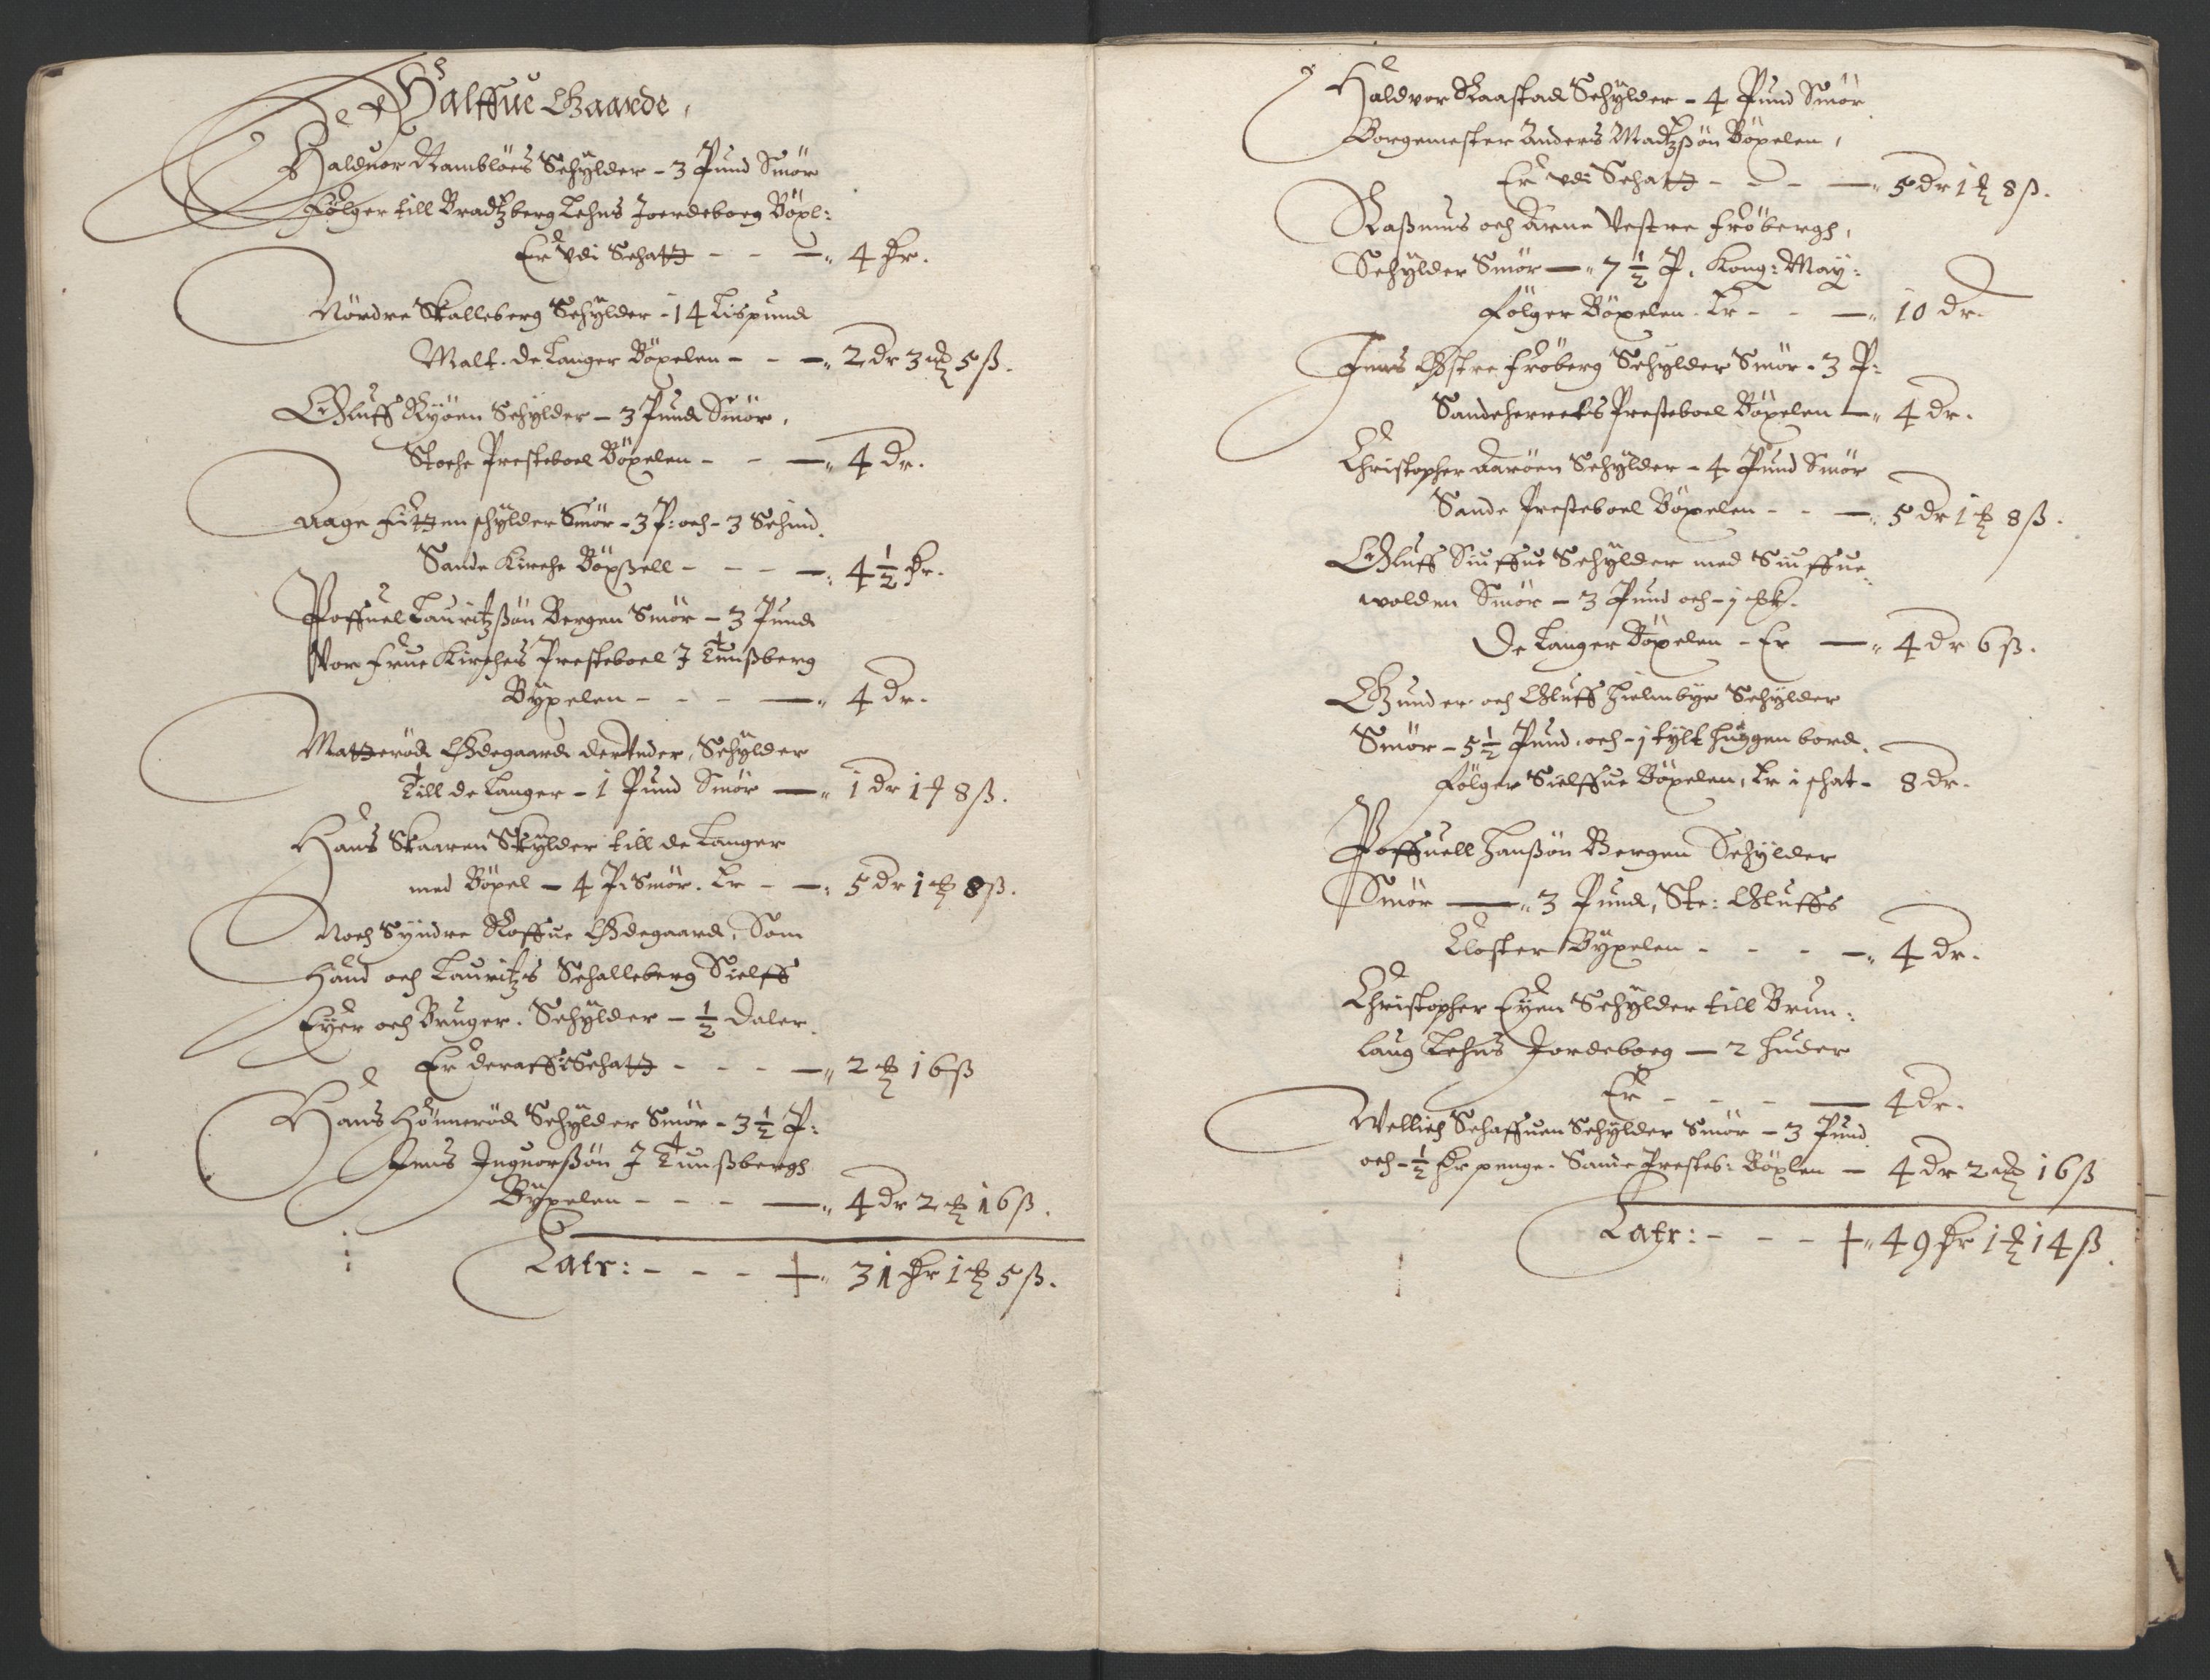 De Halffue Gaarde,
Halduor Rambløes Schylder - 3 Pund Smør
Følger till Bradtzberg Lehns Joerdeboeg Böxl:
Er vdi Schatt - - - 4 dr.
Nørdre Skalleberg Schylder - 14 Lispund
Malt. de Langer Böxelen - - - 2 dr 3 ℔ 5 ß.
Oluff Ryöen Schylder - 3 Pund Smör,
Stoche Presteboel Böxelen - - - 4 dr.
Aage Fitten schylder Smör - 3 P: och - 3 Schind.
Sande Kirche Böxsell - - - 4 ½ dr.
Poffuel Lauritzßön Bergen Smör - 3 Pund
Vor Frue Kirches Presteboel J Tunßberg
Byxelen - - - 4 dr.
Matterød Ødegaard der Under, Schylder
Till de Langer - 1 Pund Smør - 1 dr 1 ℔ 8 ß.
Hans Skaaren Skylder till de Langer
med Böxel - 4 P. Smör. Er - - 5 dr 1 ℔ 8 ß.
Noch Syndre Roffue Ødegaard, Som
Hand och Lauritzs Schalleberg Sielff
Eyer och Bruger. Schylder - ½ Daler.
Er deraff i Schatt - - - 2 ℔ 16 ß
Hans Hönnerød Schylder Smör - 3 ½ P:
Jens Jnguorßön J Tunßbergh
Byxelen - - - 4 dr 2 ℔ 16 ß.
Latr: - - - 31 dr 1 ℔ 5 ß.
Haldvor Raastad Schylder - 4 Pund Smör
Borgemester Anders Madtzßön Böxelen,
Er vdi Schatt - - - 5 dr 1 ℔ 8 ß.
Raßmus och Arne Vestre Fröbergh,
Schylder Smör - 7 ½ P. Kong: May:
Følger Böxelen. Er - - 10 dr.
Jens Østre Fröberg Schylder Smör - 3 P:
Sandeherrets Presteboel Böxelen - 4 dr.
Christopher Aaröen Schylder - 4 Pund Smör
Sande Presteboel Böxelen - - - 5 dr 1 ℔ 8 ß.
Oluff Siuffue Schylder med Siuffue
wolden Smör - 3 Pund och - j
De Langer Böxelen - Er - 4 dr 6 ß.
Gunder och Oluff Hielmbye Schylder
Smör - 5 ½ Pund. och - j tylt huggen bord.
Følger Sielffue Böxelen, Er i schat - 8 dr.
Poffuell Hanßön Bergen Schylder
Smör - 3 Pund, Ste: Oluffs
Closter Byxelen - - - 4 dr.
Christopher Eyen Schylder till Brun:
laug Lehns Jordeboeg - 2 huder
Er - - - 4 dr.
Wellich Schaffuen Schylder Smör - 3 Pund
och - ½ dr penge. Sande Presteb: Böxlen - 4 dr 2 ℔ 16 ß
Latr: - - - 49 dr 1 ℔ 14 ß.